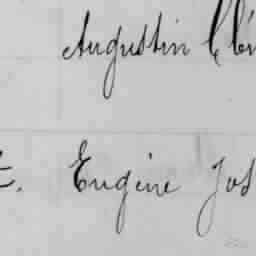 Augustin Clé
E. Eugène Jos